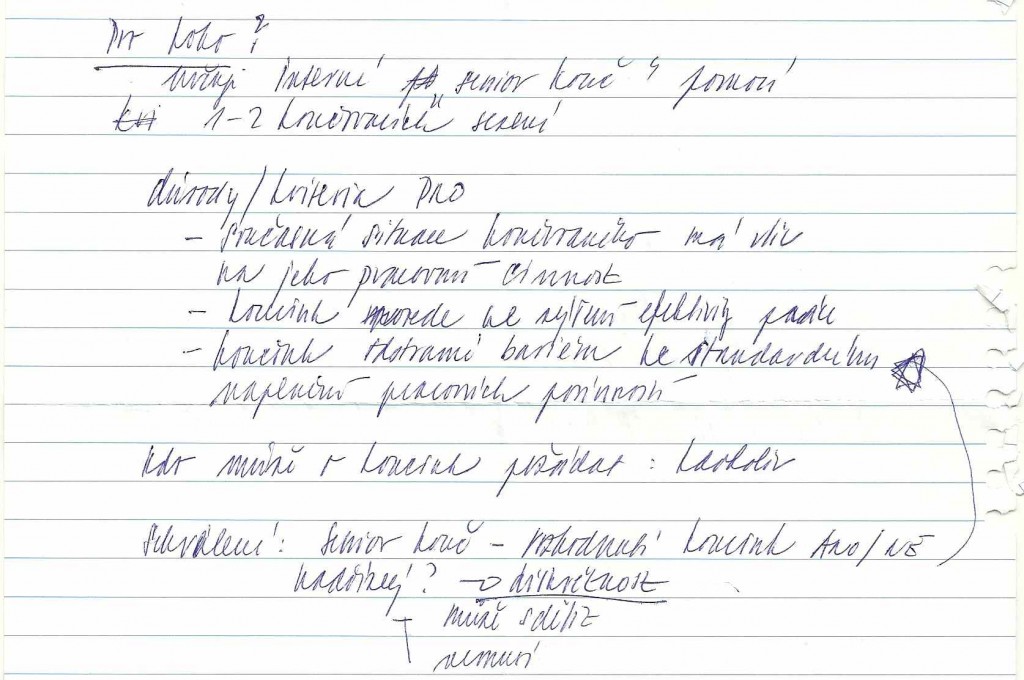 Pro koho?
určuje interní "senior kouč" pomocí
1-2 koučovacích sezení
důvody/kriteria PRO
- současná situace koučovaného má vliv
na jeho pracovní činnost
- koučink povede ke zvýšení efektivity práce
- koučink odstraní bariéru ke standardnímu
naplnění pracovních povinností
kdo může o koučink požádat: kdokoliv
Schválení: senior kouč - rozhodnutí koučink ANO/NE
nadřízený? → diskrétnost
může sdělit
nemusí